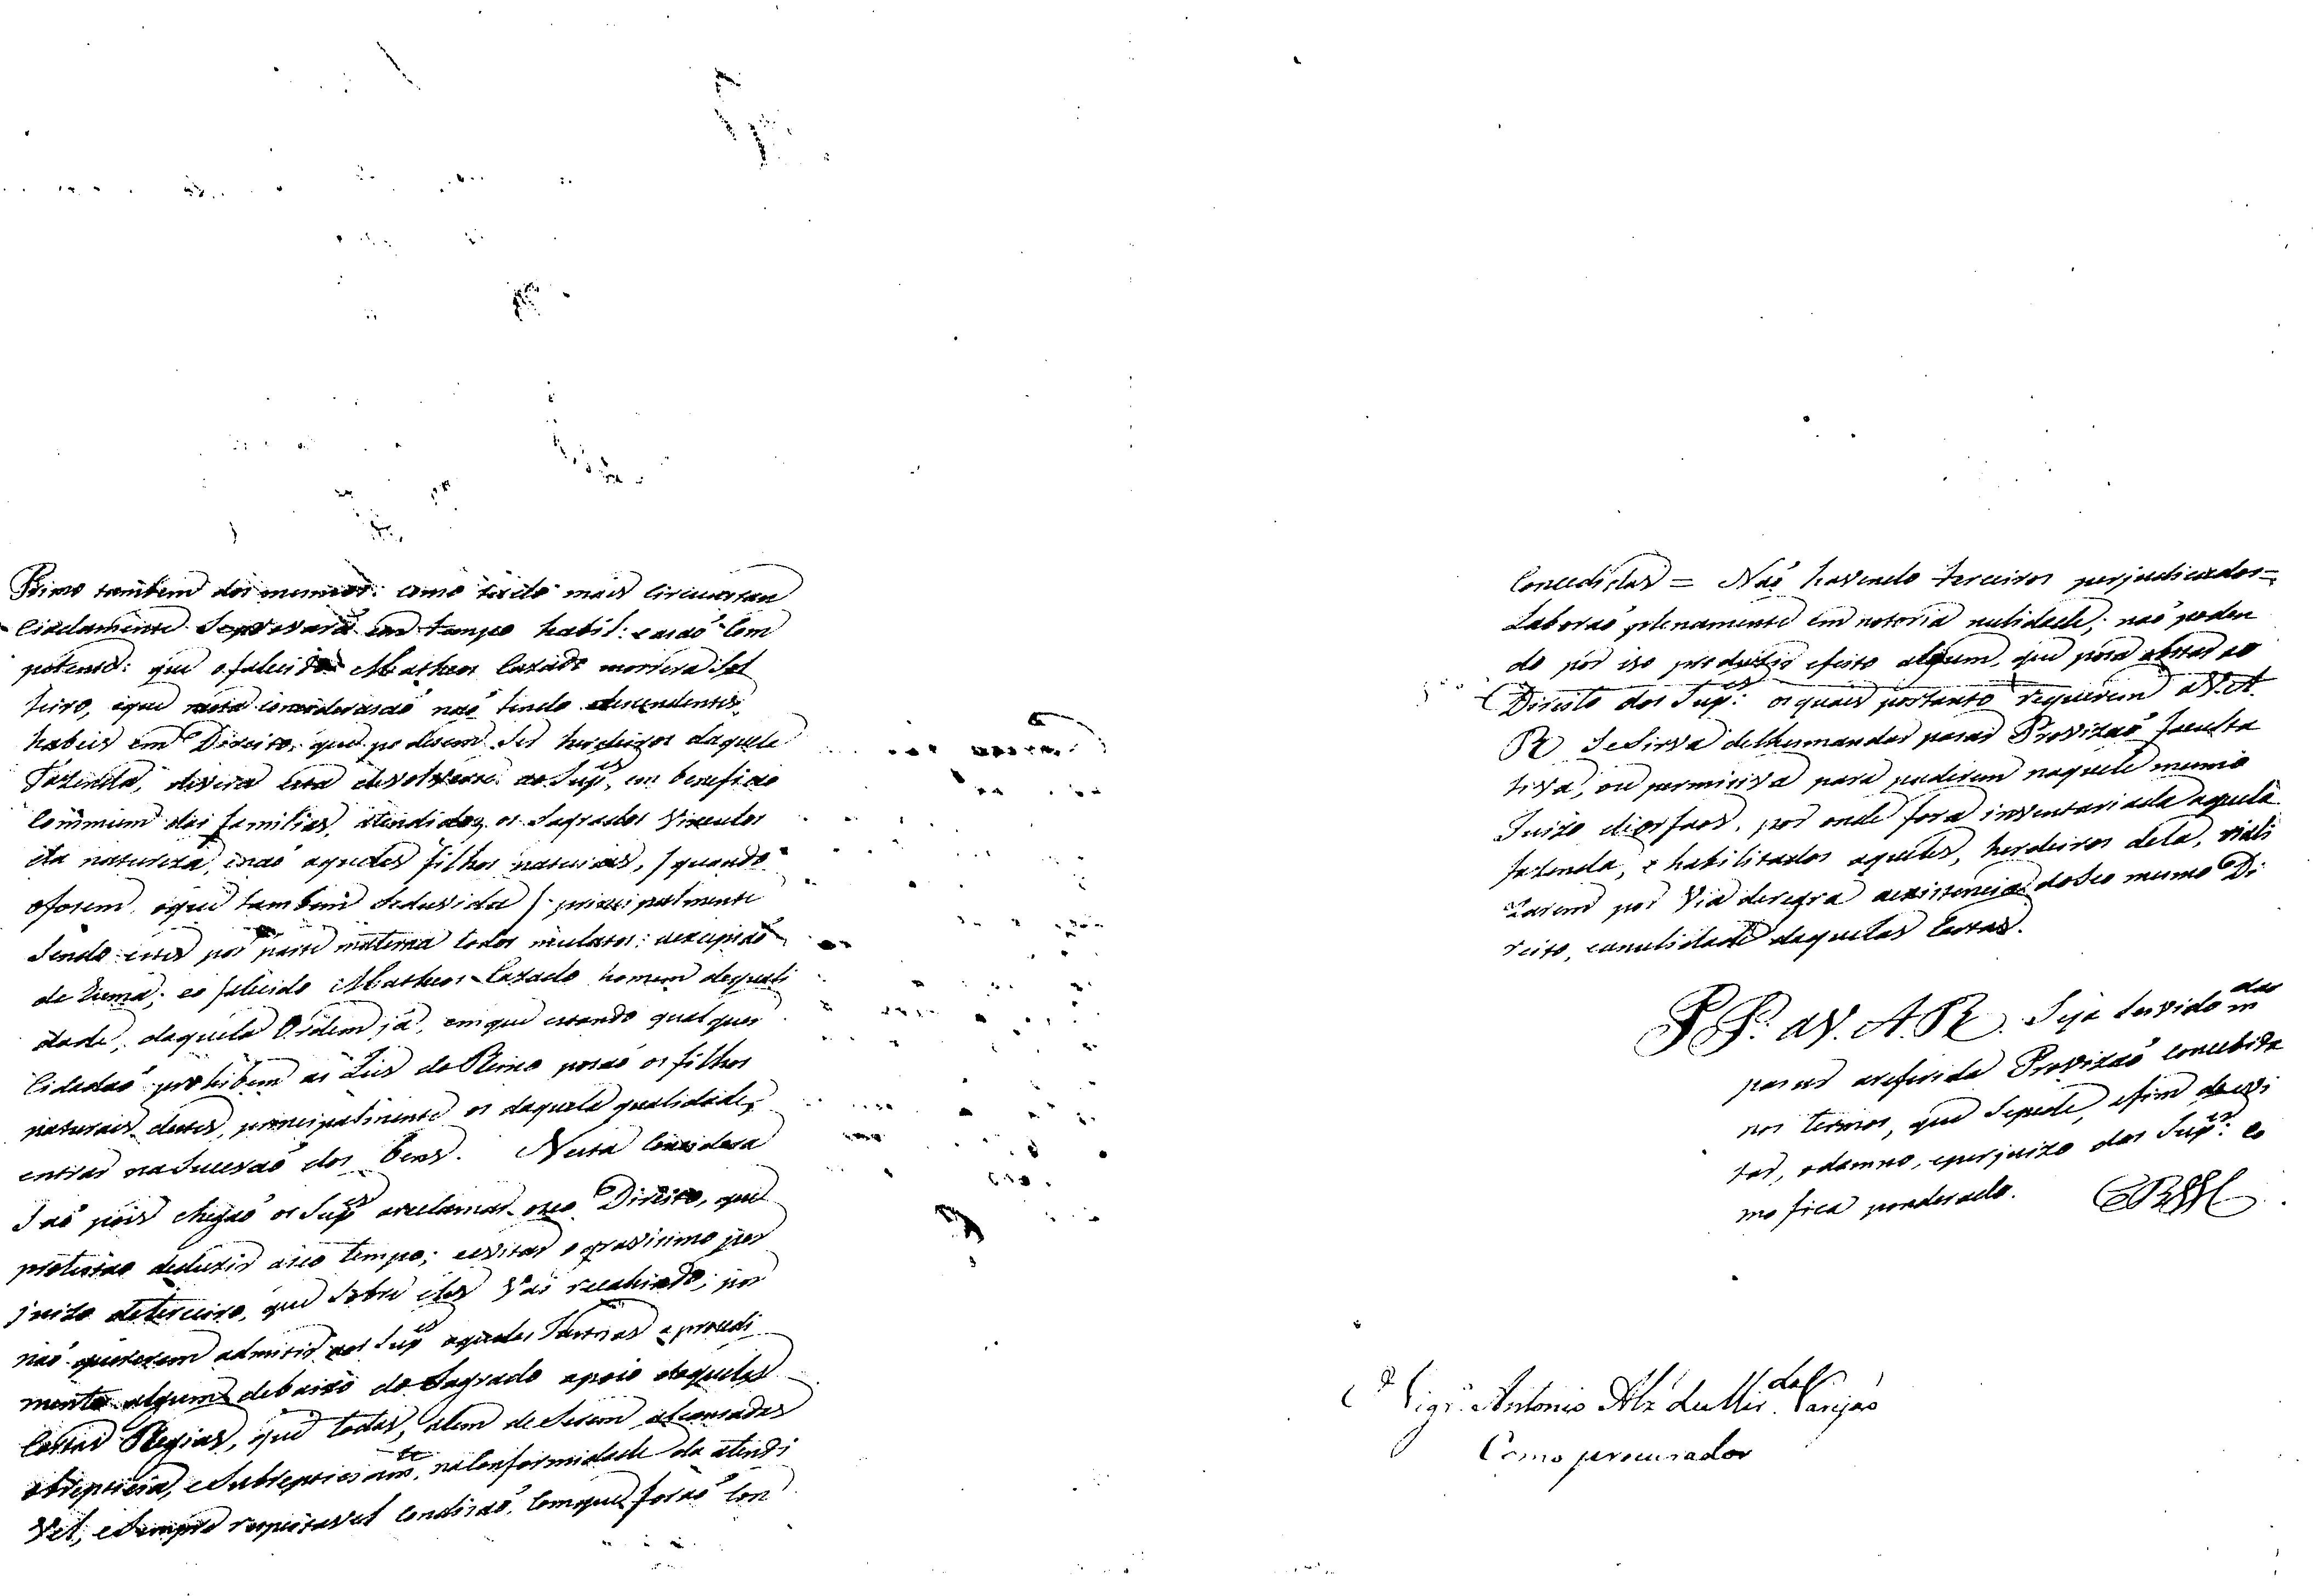 Primo tambem dos mesmos: como tudo mais circunstan
ciadamente Seprovará em tempo habil: e assaõ Com
petente: que ofalecido Matheos Cazado morrera Sol
teiro, eque nesta consideraçaõ naõ tendo descendentes
habeis em Direito, que podesem Ser herdeiros daquela
Fazenda, devera esta devolverse ao Sup.es, em beneficio
Commum das familias, atendidos os Sagrados Vinculos
da natureza, enaõ aqueles filhos naturais, / quando
oforem, oque tambem Seduvida / principalmente
Sendo estes por parte materna todos mulatos: aexcepsaõ
de huma; eo falecido Matheos Cazado homem dequali
dade, daquela Ordem já, emque estando qualquer
Cidadaõ prohibem as Leis do Reino posaõ os filhos
naturais destes, principalmente os daquela qualidade,
entrar na Sucesaõ dos bens. Nesta Considera
saõ pois chegaõ os Sup.es areclamar oseo Direito, que
protestaõ deduzir aseo tempo; eevitar o gravisimo per
juizo deterceiro, que Sobre eles Vai recahindo; por
naõ quererem admitir aos Sup.es aquelas Justisas aprocedi
mento algum debaixo do Sagrado apoio daquelas
Cartas Regias, que todas, alem de Serem alcansadas
obrepticia, eSubrepticiam.te, naConformidade da atendi
vel, eSempre respeitavel condisaõ, Comque foraõ Con
Concedidas = Naõ havendo terceiros perjudicados =
Laboraõ plenamente em notoria nulidade; naõ poden
do por iso produzir efeito algum, que posa obstar ao
Direito dos Sup.es: os quais portanto requerem aV. A.
R. SeSirva delhesmandar pasar Provizaõ faculta
tiva, ou permisiva para puderem naquele mesmo
Juizo deorfaos, por onde fora inventariada aquela
fazenda, e habilitados aqueles, herdeiros dela, viali
zarem por Via deregra aexistencia doSeo mesmo Di
reito, eanulidade daquelas Cartas.
P.P. aV. A. R. Seja Servido m.dar
pasar areferida Provizaõ concebida
nos termos, que Sepede, afim deevi
tar, odamno, eperjuizo dos Sup.es: co
mo fica ponderado. ERM
O Vigr.o Antonio Alz' de Mir.da Varejaõ
Como procurador